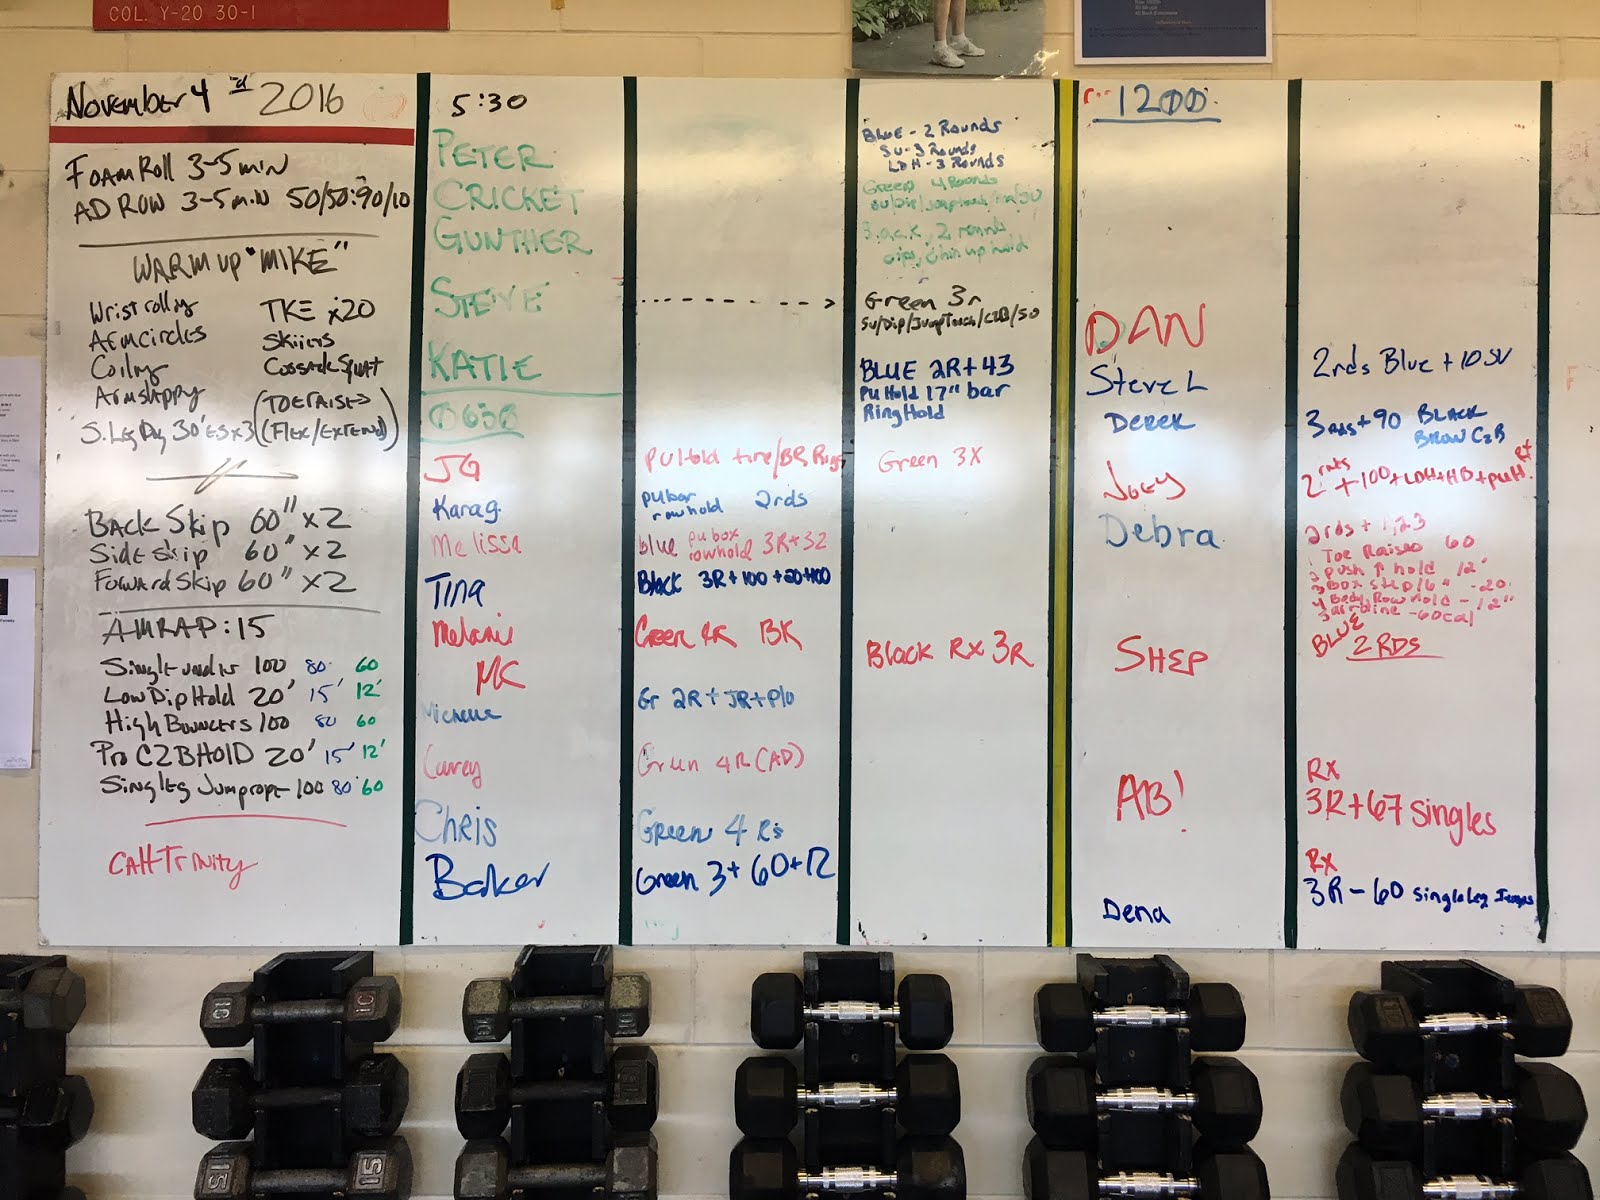 COL. Y-20 30-1
NOVEMBER 4 rd 2016
FOAM ROLL 3-5 min
AD ROW 3-5 min 50/50:90/10
WARM UP "MIKE"
Wrist rolling
Arm circles
Coiling
Armslappy
S. Leg Dog 30'ES x3
TKE x20
Skiiers
Cossack Squat
(TOE RAISES)
(FLEX/EXTEND)
BACK SKIP 60" x 2
SIDE SKIP 60" x 2
FORWARD SKIP 60" x 2
AMRAP: 15
Single unders 100 80 60
Low Dip Hold 20' 15' 12'
High Bouncers 100 80 60
Pro C2B HOLD 20' 15' 12'
Single leg Jumprope 100 80 60
CAH-Trinity
5:30
PETER
CRICKET
GUNTHER
STEVE
KATIE
0630
JG
Karag.
Melissa
Tina
Melanie
MC
Michelle
Carey
Chris
Barker
PU Hold time/BR Rings
pubar
rowhold 2rds
blue pu box
rowhold 3R+32
Black 3R+100+20+100
Green RX BK
Gr 2R + JR + P/U
Green 4R (AD)
Green 4 Rs
Green 3+ 60+12
BLUE - 2 Rounds
SU-3 Rounds
LDH-3 Rounds
Green 4 Rounds
SU/Dip/Jump Touch
2 rounds
dips, chin up hold
Green 3r
SU/Dip/Jump Touch/C2B/SU
BLUE 2R+43
PU Hold 17" bar
Ring Hold
Green 3X
Black RX 3R
1200
DAN
Steve L
DEREK
JOEY
Debra
SHEP
AB!
Dena
2rds Blue + 10 SU
3 rds + 90 BLACK
BROW C2B
2 rnds + 100 + LDH + HB + PUH. RX
2rds + 1,23
1 Toe Raises 60
2 push ↑ hold 12"
3 box step/6" -20
4 Body Row Hold - 12"
5 airbline -60cal
BLUE
2 RDS
RX
3R+67 Singles
RX
3R-60 Single Leg Jumps
10
10
15
15